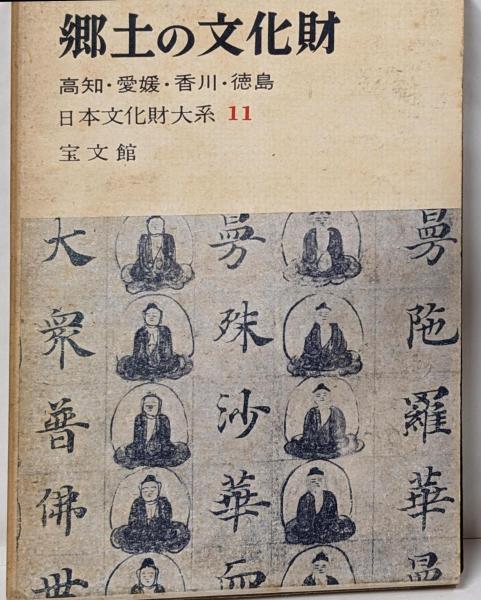 郷土の文化財
高知・愛媛・香川・徳島
日本文化財大系 11
宝文館
曼陁羅華
曼殊沙華
大衆普佛世